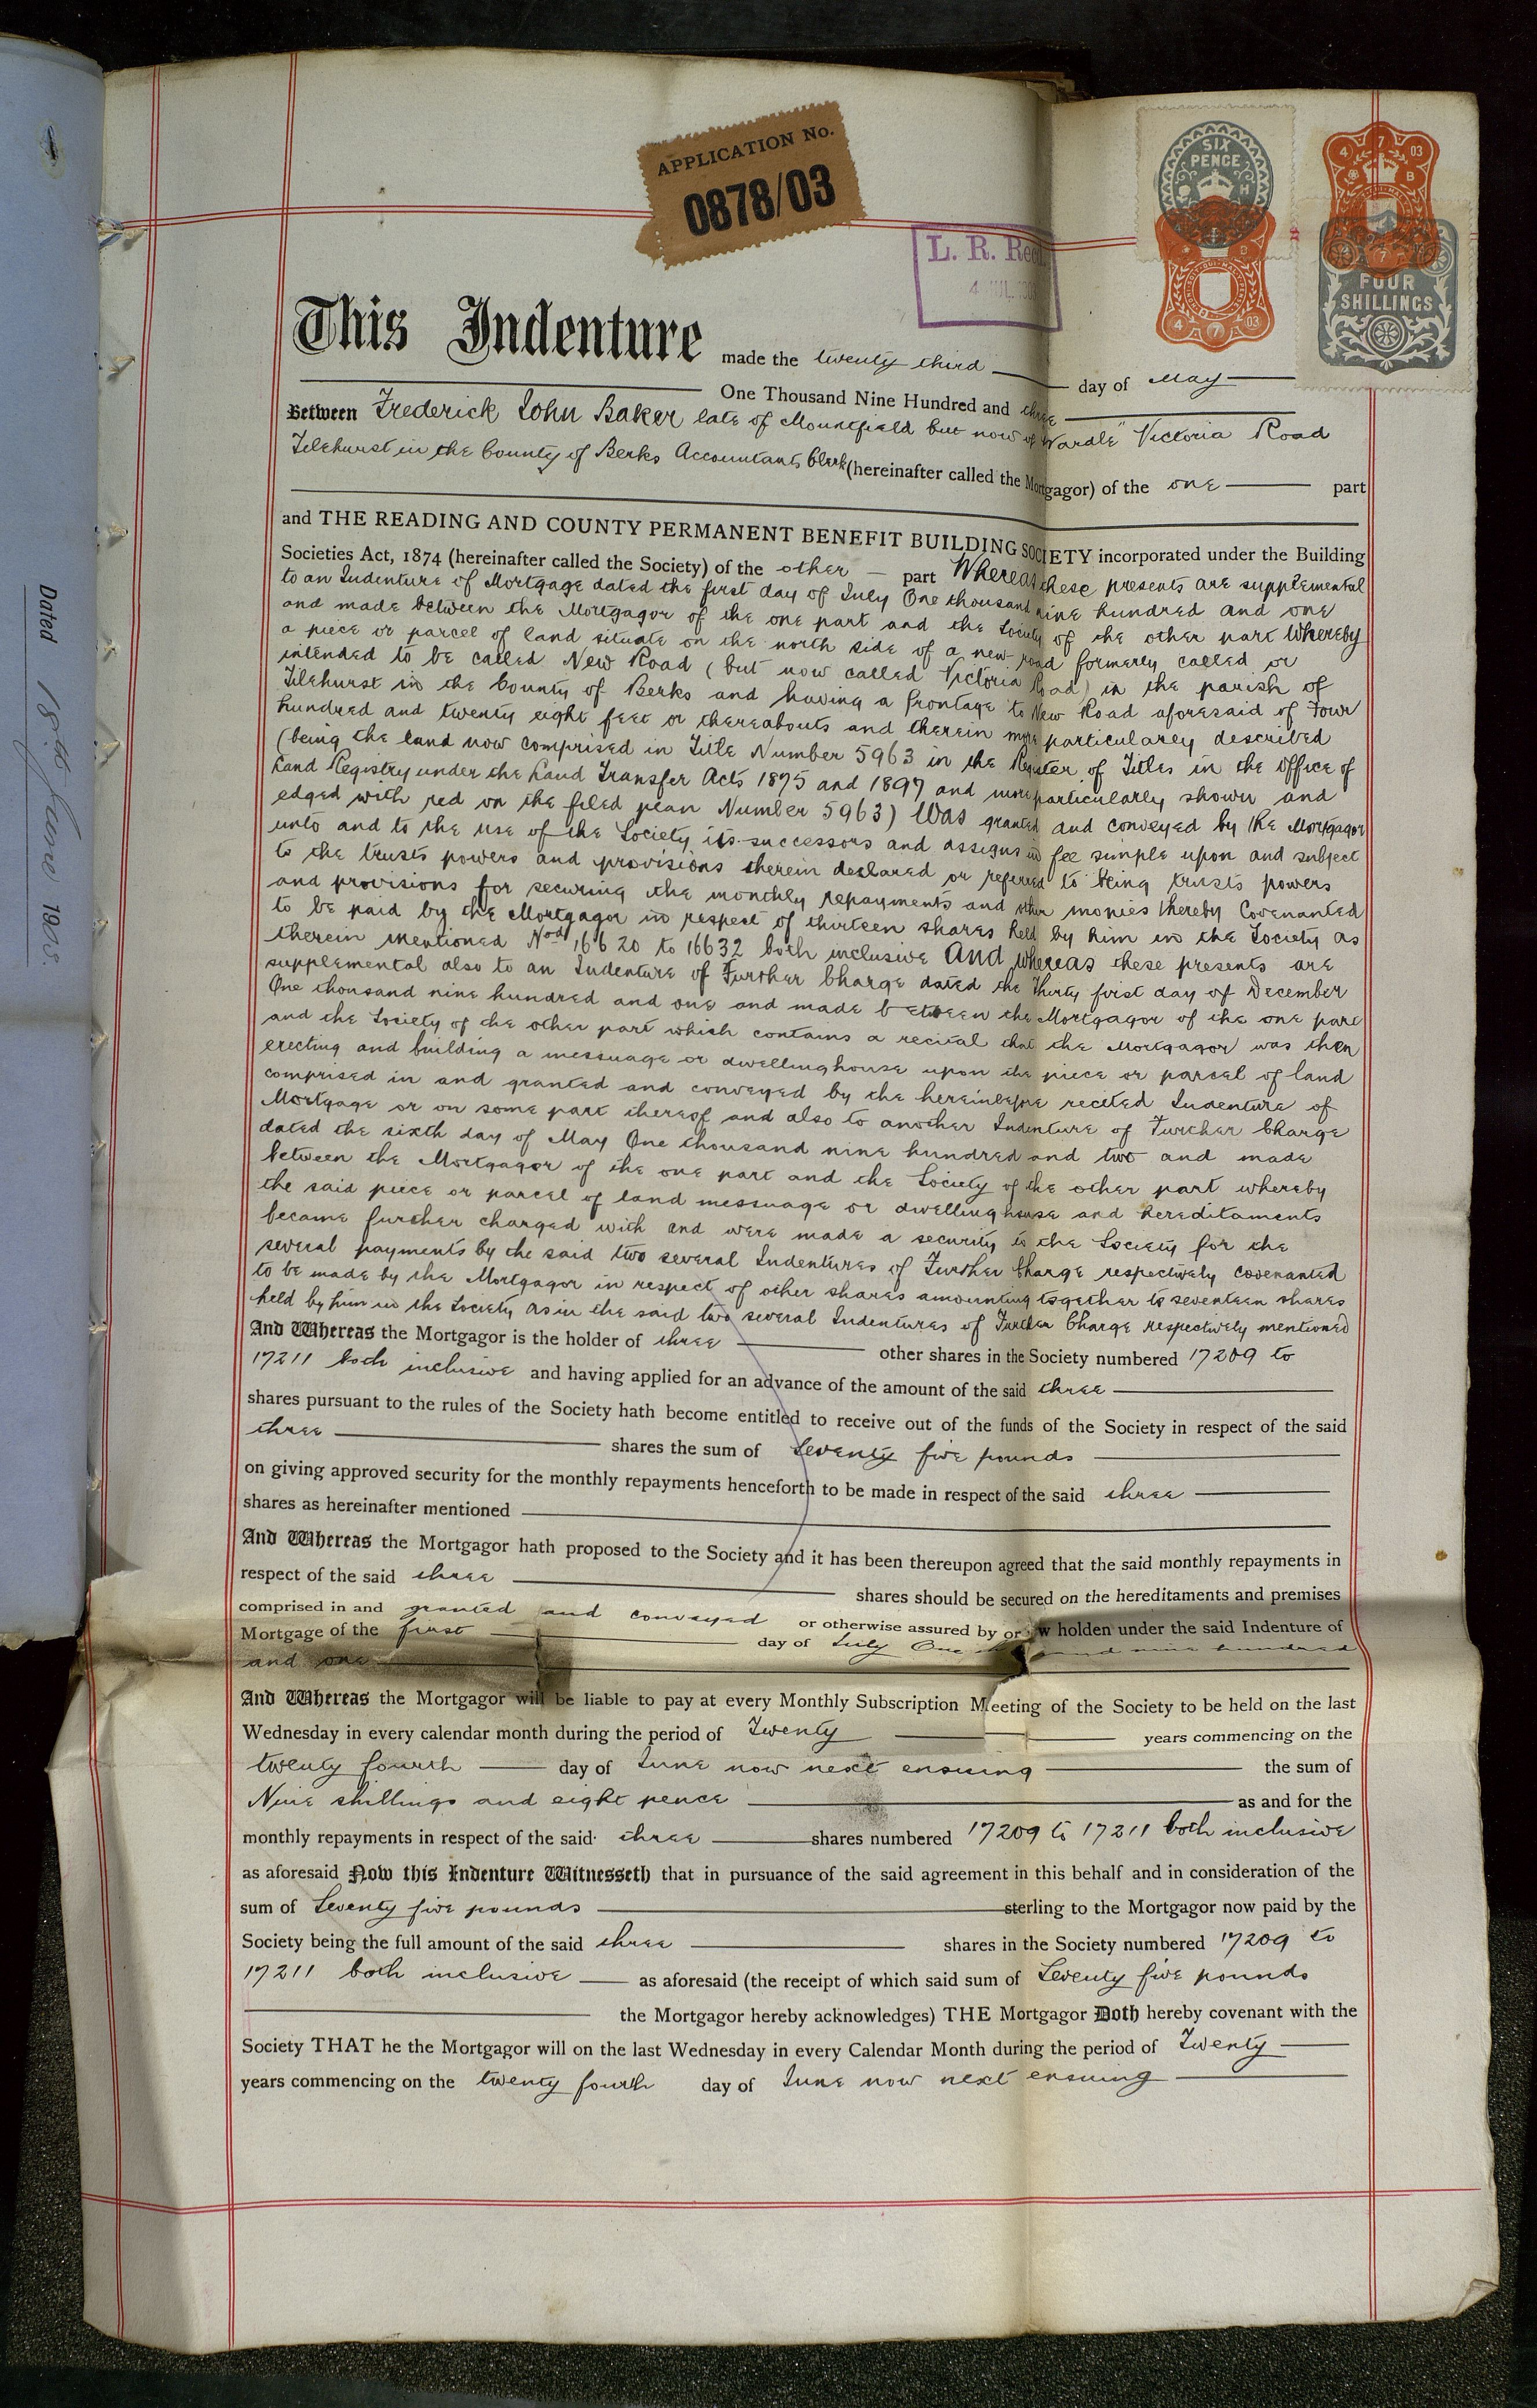 APPLICATION No.
0878/03
L. R. Recd.
4 JUL. 190
SIX
PENCE
H
4 7 03
B
FOUR
SHILLINGS
4 7 03
This Indenture made the twenty third day of May
One Thousand Nine Hundred and three
Between Frederick John Baker late of Mountfield but now of "Wardle" Victoria Road
Tilehurst in the County of Berks Accountants Clerk (hereinafter called the Mortgagor) of the one part
and THE READING AND COUNTY PERMANENT BENEFIT BUILDING SOCIETY incorporated under the Building
Societies Act, 1874 (hereinafter called the Society) of the other part Whereas these presents are supplemental
to an Indenture of Mortgage dated the first day of July One thousand nine hundred and one
and made between the Mortgagor of the one part and the Society of the other part Whereby
a piece or parcel of land situate on the north side of a new road formerly called or
intended to be called New Road (but now called Victoria Road) in the parish of
Tilehurst in the County of Berks and having a frontage to New Road aforesaid of Four
hundred and twenty eight feet or thereabouts and therein more particularly described
(being the land now comprised in Title Number 5963 in the Register of Titles in the Office of
Land Registry under the Land Transfer Acts 1875 and 1897 and more particularly shown and
edged with red on the filed plan Number 5963) Was granted and conveyed by the Mortgagor
unto and to the use of the Society its successors and assigns in fee simple upon and subject
to the trusts powers and provisions therein declared or referred to being trusts powers
and provisions for securing the monthly repayments and other monies thereby Covenanted
to be paid by the Mortgagor in respect of thirteen shares held by him in the Society as
therein mentioned Nos 16620 to 16632 both inclusive And whereas these presents are
supplemental also to an Indenture of Further Charge dated the Thirty first day of December
One thousand nine hundred and one and made between the Mortgagor of the one part
and the Society of the other part which contains a recital that the Mortgagor was then
erecting and building a messuage or dwellinghouse upon the piece or parcel of land
comprised in and granted and conveyed by the hereinbefore recited Indenture of
Mortgage or on some part thereof and also to another Indenture of Further Charge
dated the sixth day of May One thousand nine hundred and two and made
between the Mortgagor of the one part and the Society of the other part whereby
the said piece or parcel of land messuage or dwellinghouse and hereditaments
became further charged with and were made a security to the Society for the
several payments by the said two several Indentures of Further Charge respectively covenanted
to be made by the Mortgagor in respect of other shares amounting together to seventeen shares
held by him in the Society as in the said two several Indentures of Further Charge respectively mentioned
And Whereas the Mortgagor is the holder of three other shares in the Society numbered 17209 to
17211 both inclusive and having applied for an advance of the amount of the said three
shares pursuant to the rules of the Society hath become entitled to receive out of the funds of the Society in respect of the said
three shares the sum of Seventy five pounds
on giving approved security for the monthly repayments henceforth to be made in respect of the said three
shares as hereinafter mentioned
And Whereas the Mortgagor hath proposed to the Society and it has been thereupon agreed that the said monthly repayments in
respect of the said three shares should be secured on the hereditaments and premises
comprised in and granted and conveyed or otherwise assured by or w holden under the said Indenture of
Mortgage of the first day of July One nd nine hundred
and one
And Whereas the Mortgagor will be liable to pay at every Monthly Subscription Meeting of the Society to be held on the last
Wednesday in every calendar month during the period of Twenty years commencing on the
twenty fourth day of June now next ensuing the sum of
Nine shillings and eight pence as and for the
monthly repayments in respect of the said three shares numbered 17209 to 17211 both inclusive
as aforesaid Now this Indenture Witnesseth that in pursuance of the said agreement in this behalf and in consideration of the
sum of Seventy five pounds sterling to the Mortgagor now paid by the
Society being the full amount of the said three shares in the Society numbered 17209 to
17211 both inclusive as aforesaid (the receipt of which said sum of Seventy five pounds
the Mortgagor hereby acknowledges) THE Mortgagor Doth hereby covenant with the
Society THAT he the Mortgagor will on the last Wednesday in every Calendar Month during the period of Twenty
years commencing on the twenty fourth day of June now next ensuing
Dated 18th June 1903.